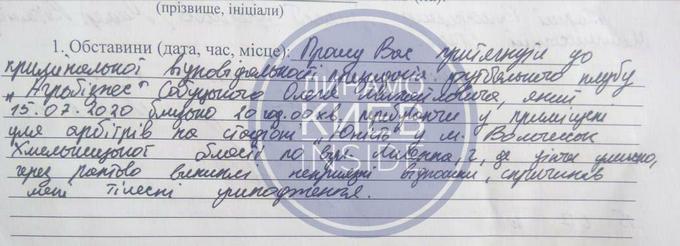 (прізвище, ініціали)
1. Обставини (дата, час, місце): Прошу Вас притягнути до
кримінальної відповідальності президента футбольного клубу
„Агробізнес" Собуцького Олега Михайловича, який
15.07.2020 близько 20 год. 00 хв. прибуваючи у приміщені
для арбітрів на стадіоні „Юність" у м. Волочиськ
Хмельницької області по вул. Лисенка, 2, де діючи умисно,
через раптово виниклі неприязні відносини, спричинив
мені тілесні ушкодження.
КИЕВ
INSIDE